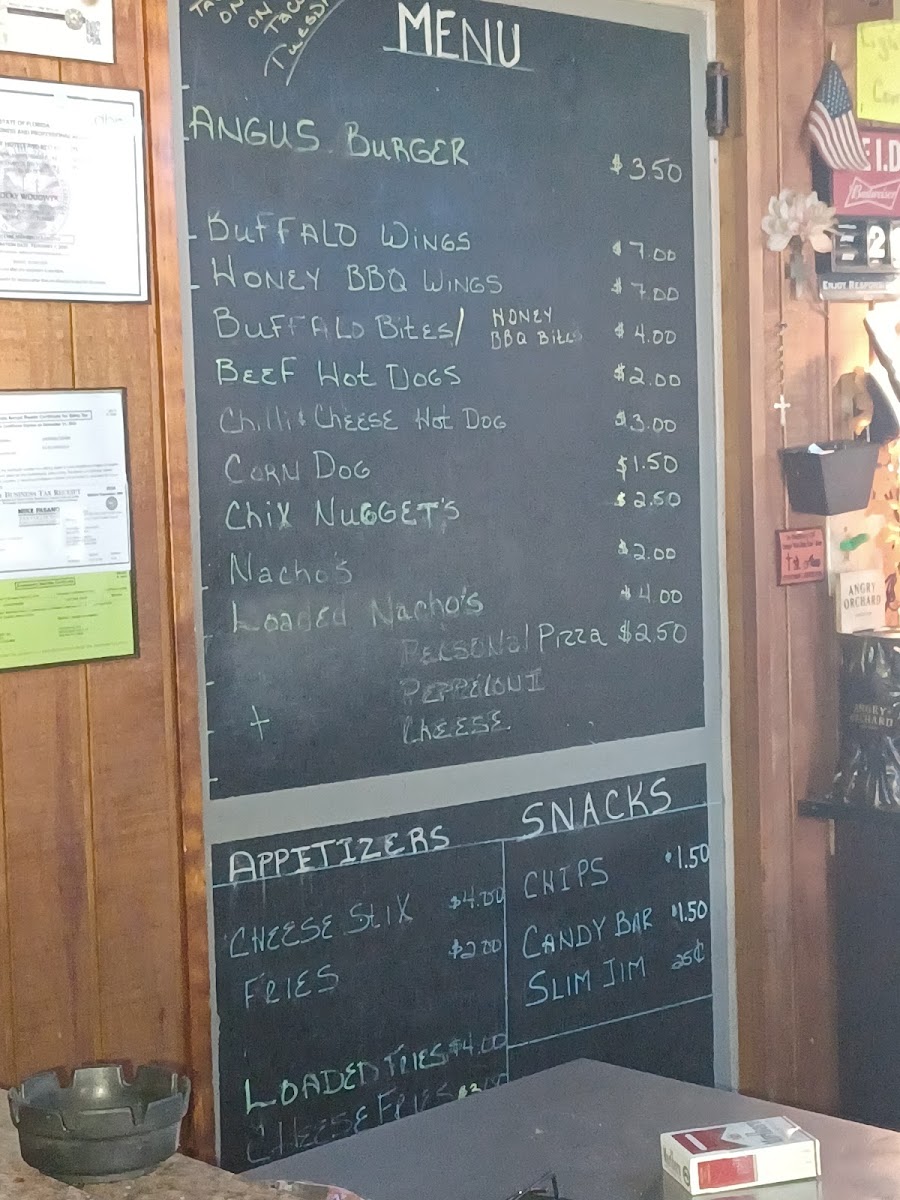 ON
ON
TACO
TUESDAY
MENU
ANGUS BURGER $3.50
BUFFALO WINGS $7.00
HONEY BBQ WINGS $7.00
BUFFALO BITES/ HONEY BBQ BITES $4.00
BEEF HOT DOGS $2.00
CHILLI & CHEESE HOT DOG $3.00
CORN DOG $1.50
CHIX NUGGET'S $2.50
NACHO'S $2.00
LOADED NACHO'S $4.00
PERSONAl PIZZA $2.50
PEPPELONI
CHEESE
APPETIZERS
CHEESE STIX $4.00
FRIES $2.00
LOADED FRIES $4.00
CHEESE FRIES
SNACKS
CHIPS $1.50
CANDY BAR $1.50
SLIM JIM 25¢
STATE OF FLORIDA
BUSINESS TAX RECEIPT
MIKE FASANO
I.D
Budweiser
2
ENJOY RESPONSIBLY
ANGRY
ORCHARD
ANGRY
ORCHARD